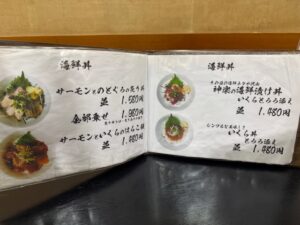 海鮮丼
サーモンとのどぐろの炙り丼
並 1,580円
全部乗せ 1,980円
サーモンといくらのはらこ丼
並 1,480円
海鮮丼
神楽の海鮮漬け丼
いくらとろろ添え
並 1,480円
シンプルな美味しさ
いくら丼
とろろ添え
並 1,480円